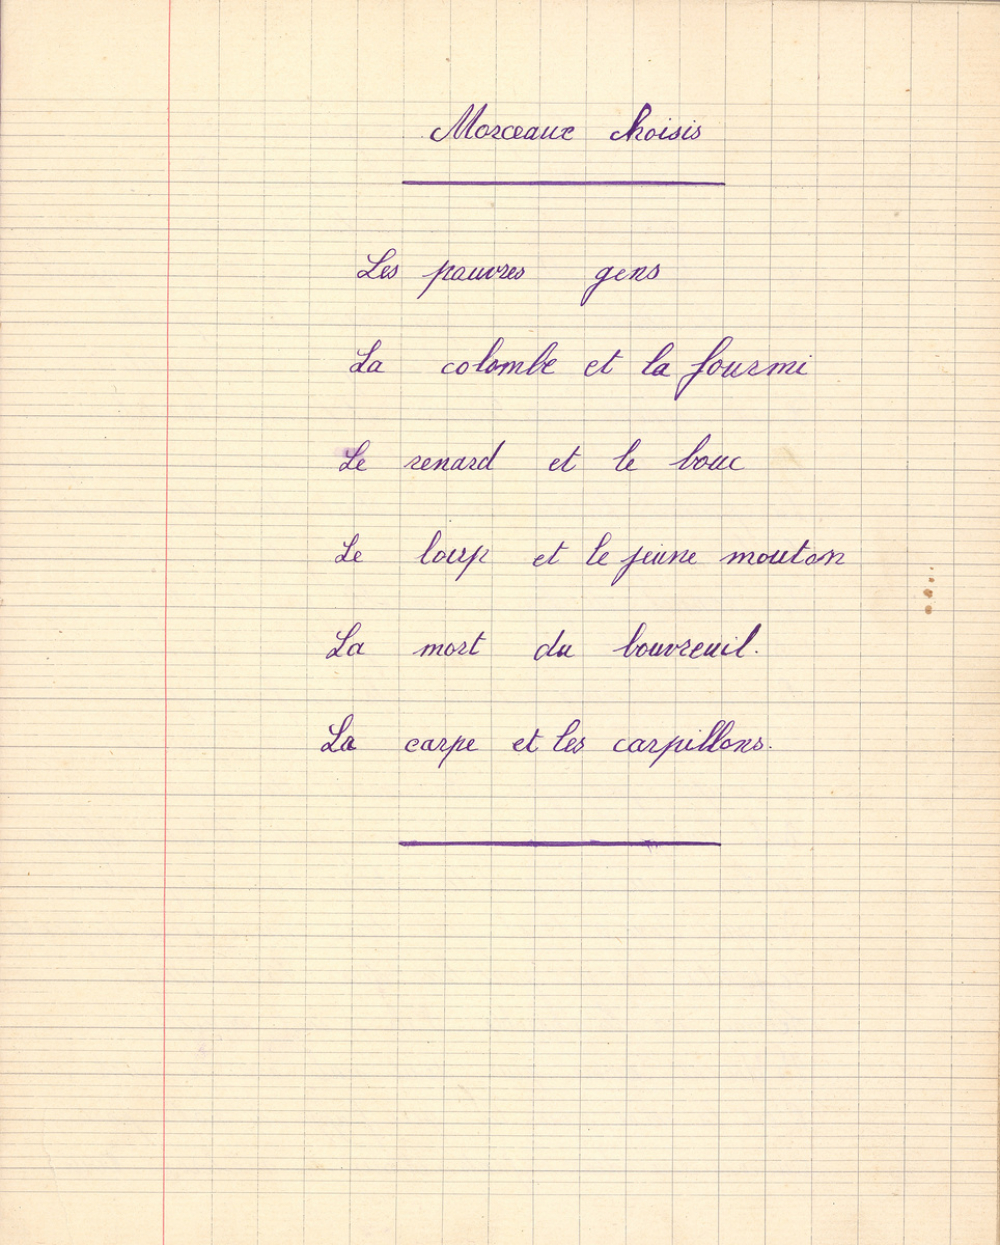 Morceaux choisis
Les pauvres gens
La colombe et la fourmi
Le renard et le bouc
Le loup et le jeune mouton
La mort du bouvreuil.
La carpe et les carpillons.